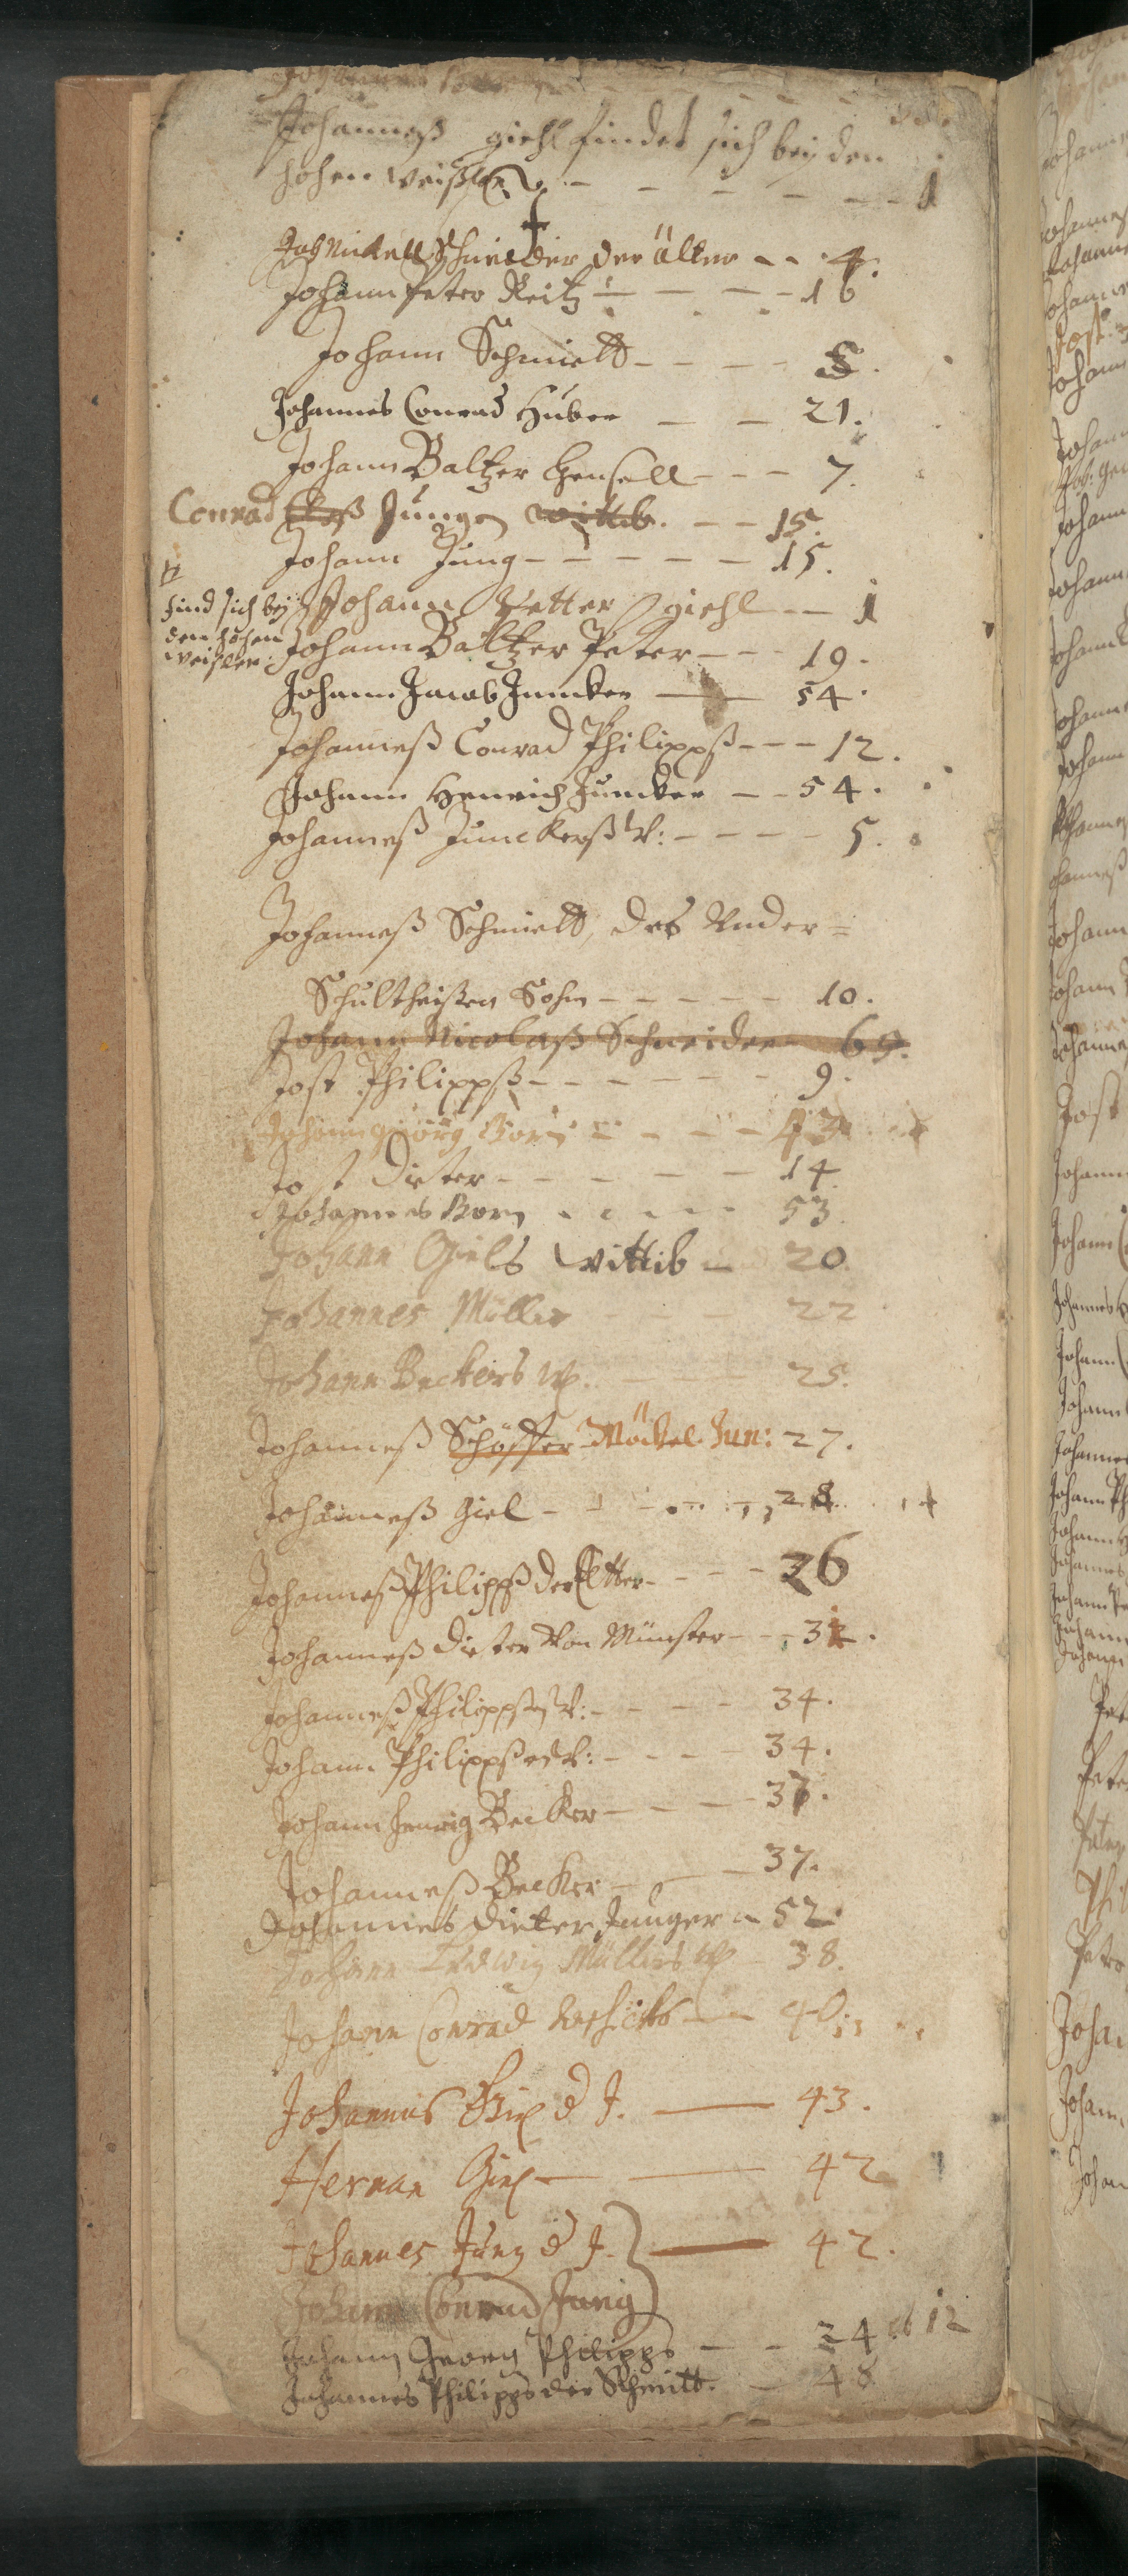 Johanneß giehl findet sich bey den
hohen weißlen - - - - - 1
Joh Nickell Schneider der älter - - 4.
Johann Peter Reitz - - - - 16
Johann Schmidt - - - - 8.
Johannes Conrad Huber - - 21.
Johann Baltzer Hensell - - - 7.
Conrad Jungen wittib. - - 15.
Johann Jung - - - - - - 15.
find sich bey
den hohen
weißlen.
Johann Petter giehl - - 1
Johann Baltzer Peter - - - 19.
Johann Jacob Juncker - 54.
Johanneß Conrad Philipps - - - 12.
Johann Henrich Juncker - - 54.
Johanneß Junckerß W: - - - - 5.
Johanneß Schmidt, des Under=
Schultheißen Sohn - - - - - 10.
Johann Nicolaß Schneider 69.
Jost Philippß - - - - - - - 9.
Johann Görg Born - - - - 43
Jost Dieter - - - - - 14
Johannes Born - - - - 53
Johann Giels wittib - 20
Johannes Müller - - - 22
Johann Beckers W. - - 25.
Johanneß Schösser Möckel Jun: 27.
Johanneß Giel - - - - 28
Johanneß Philippß der Eltter - - - 26
Johanneß Dieter von Münster - - - 32.
Johanneß Philippß W: - - - - 34.
Johann Philippß W: - - - - 34.
Johann Henrig Becker - - - - 37.
Johanneß Becker - - - 37.
Johannes Dieter Junger - 52
Johann Ludwig Müllers W - 38.
Johann Conrad - 40
Johannes Giel d J. - 43.
Herman Giel - - 42
Johannes Jung d J. - 42.
Johann Conrad Jung
Johann Georg Philipps - - 34 12
Johannes Philipps der Schmitt. - 48